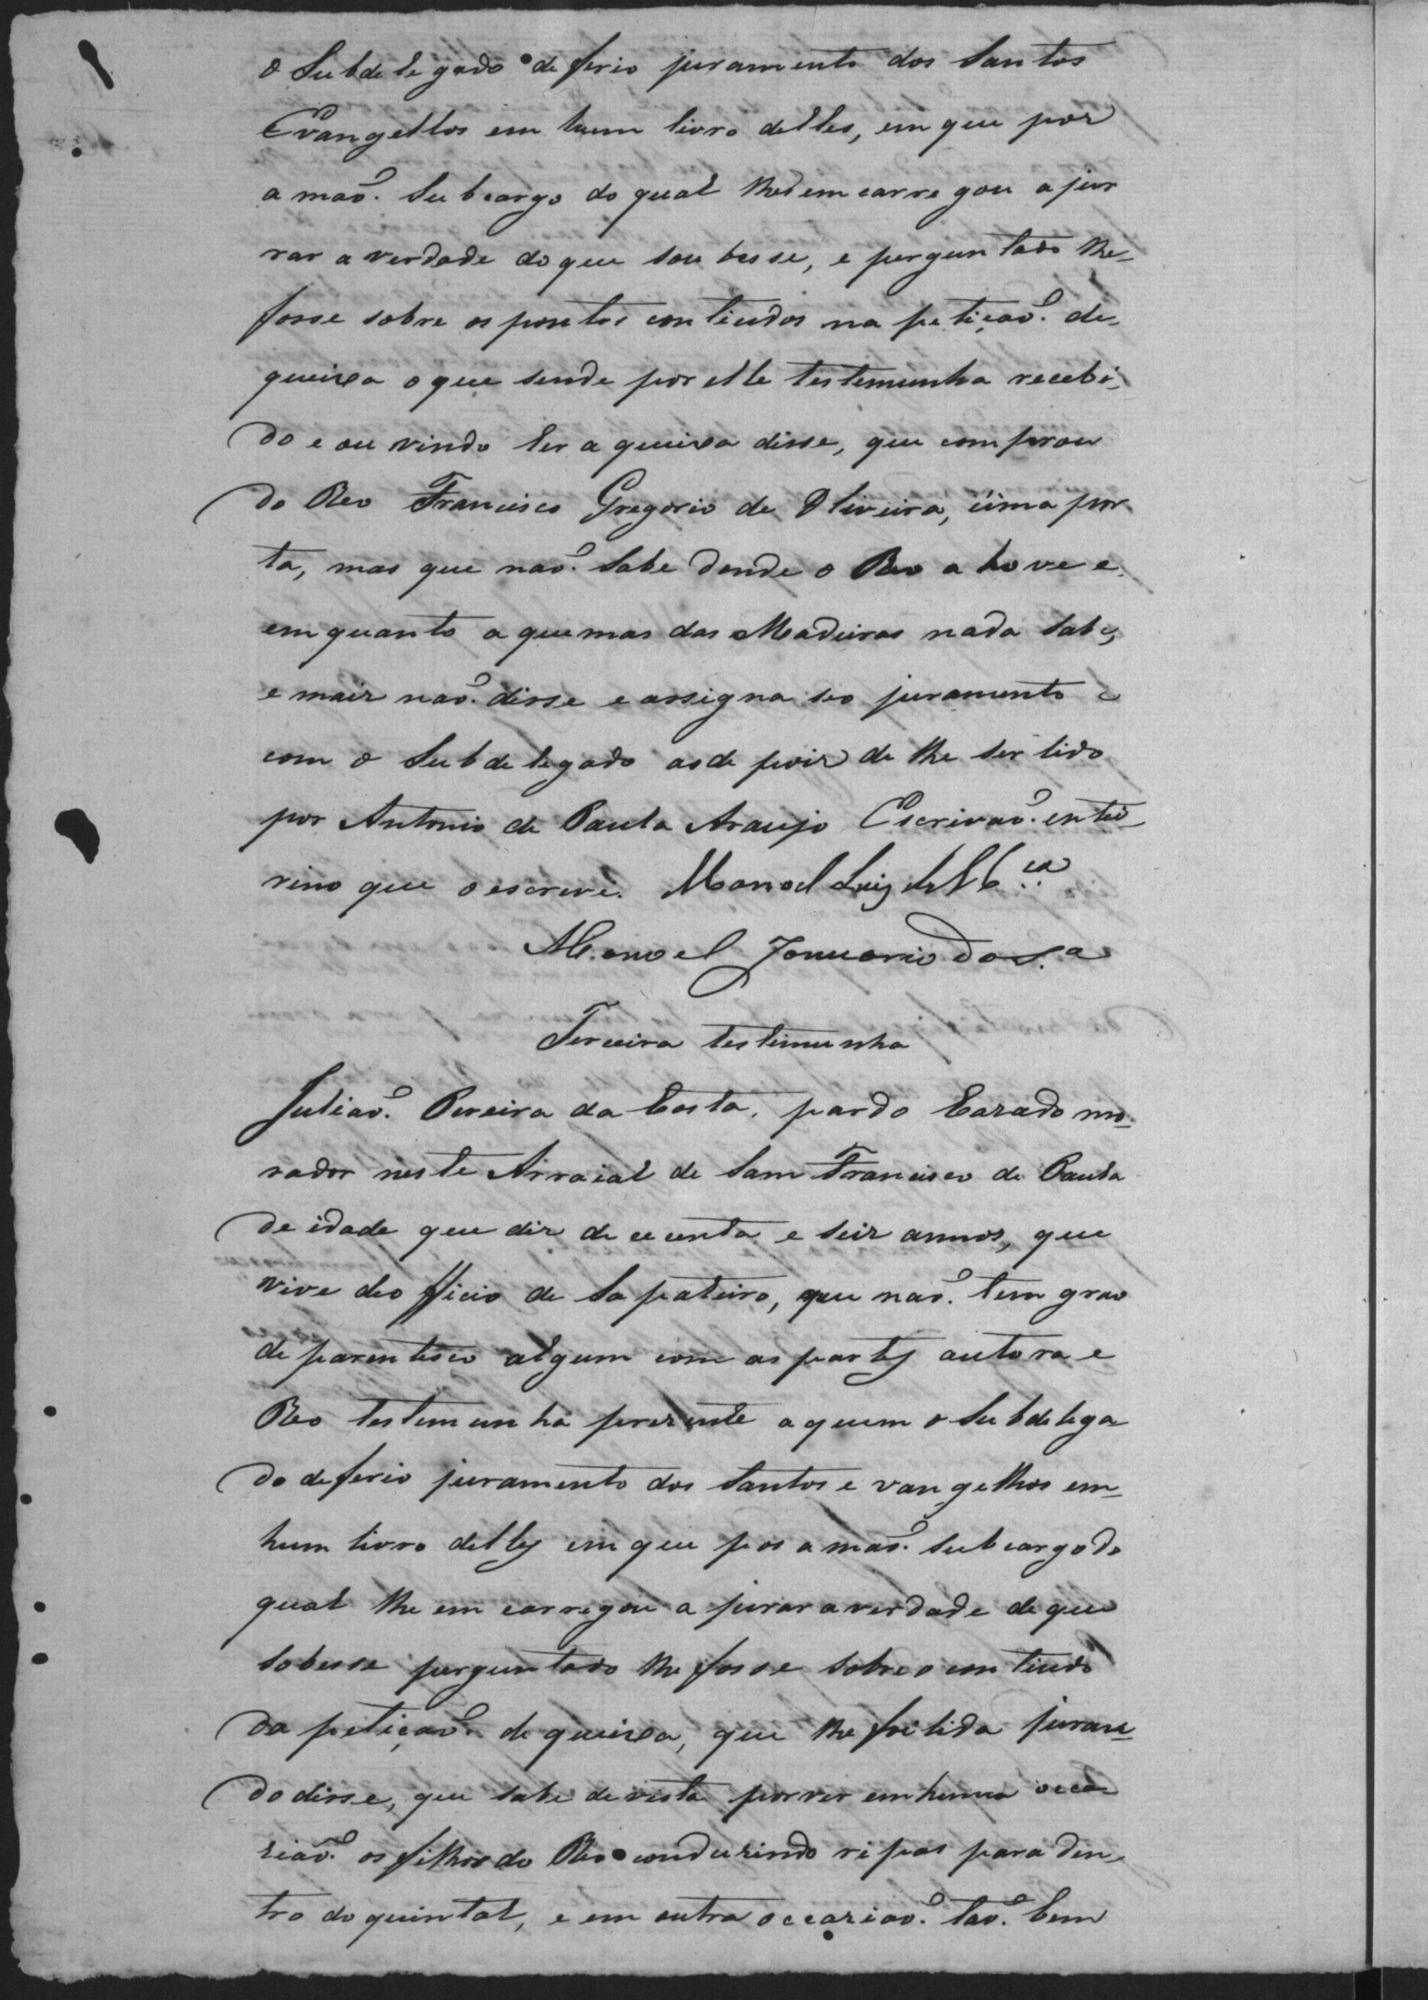 o Subdelegado deferio juramento dos Santos
Evangellos em hum livro delles, em que por
a maõ. Subcargo do qual lhe emcarregou a jur
rar a verdade do que soubesse, e perguntado lhe
fosse sobre os pontos contiudos na petiçaõ. de
queixa o que sende por elle testemunha recebi
do e ouvindo ler a queixa disse, que comprou
do Reo Francisco Gregorio de Oliveira, uma por
ta, mas que naõ. Sabe donde o Reo a hove e
emquanto a queimas das Madeiras nada sabe,
e mais naõ. disse e assigna seo juramento
com o Subdelegado asde pois de lhe ser lido
por Antonio de Paula Araujo Escrivaõ. enti
rino que o escrevi. Manoel Luiz
Manoel Januario da S.a
Terceira testimunha
Juliaõ. Pereira da Costa, pardo Cazado mo
rador neste Arraial de Sam Francisco de Paula
de idade que diz de cecenta e seis annos, que
vive deofficio de Sapateiro, que naõ. tem grao
de parentesco algum com as partes autora e
Reo testemunha prezente aquem o Subdelega
do deferio juramento dos Santos evangelhos em
hum livro delles em que pos a maõ. Subcargo do
qual lhe emcarregou a jurar a verdade de que
sobesse perguntado lhe fosse sobre o contiudo
da petiçaõ. de queixa, que lhe foi lida juran
do disse, que sabe de vista por ver em huma occa
ziaõ. os filhos do Reo conduzindo ripas para den
tro do quintal, e em outra occaziaõ. taõ. bem